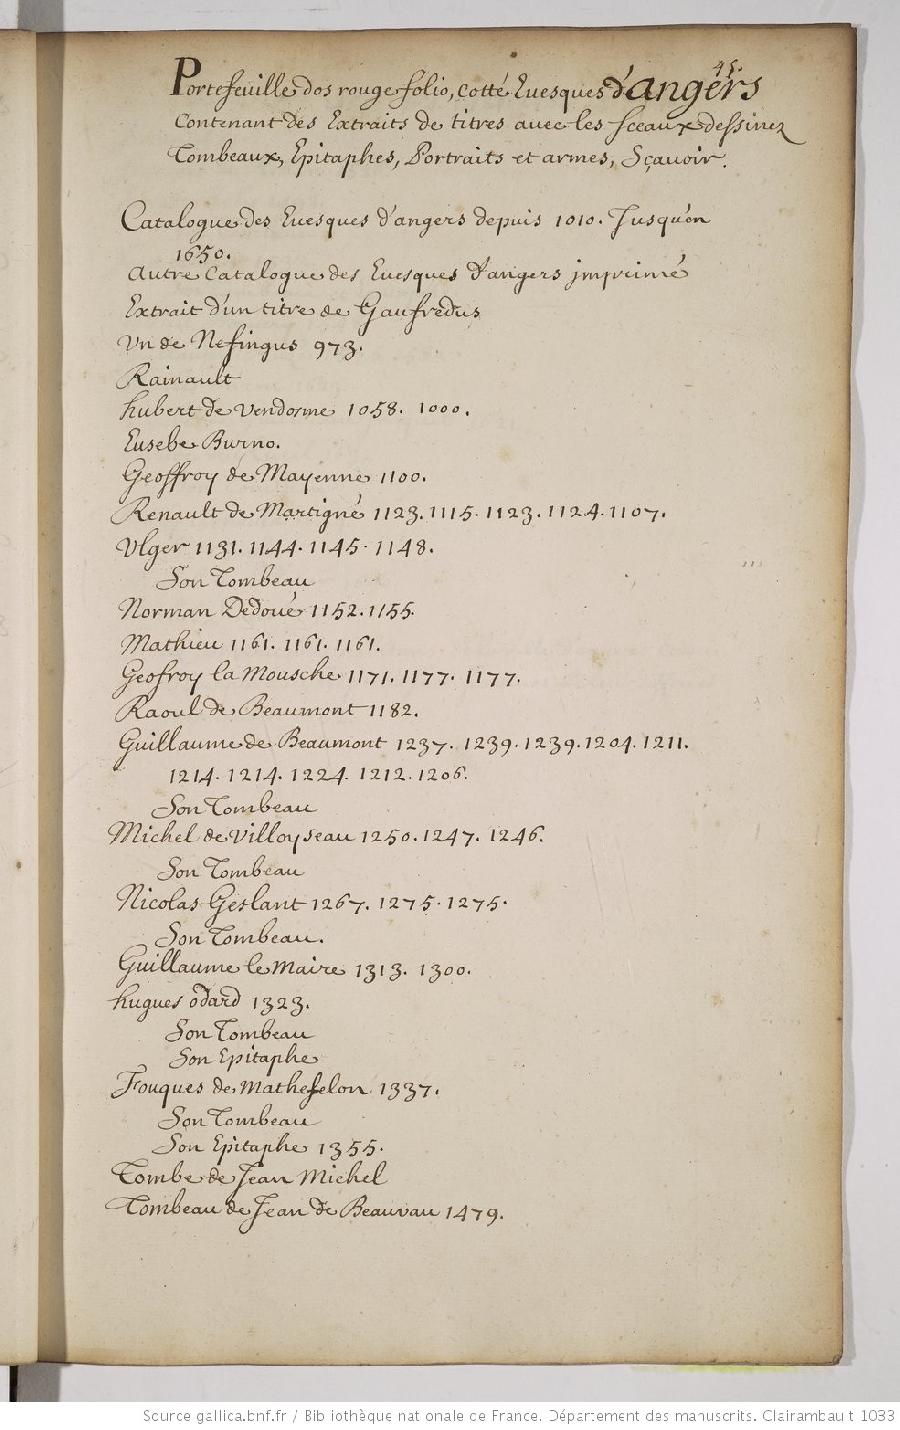 45.
Portefeuille dos rouge folio, cotté Euesques d'angers
Contenant des Extraits de titres auec les sceaux dessinez
Tombeaux, Epitaphes, Portraits et armes, Sçauoir.
Catalogue des Euesques d'angers depuis 1010. Jusqu'en
1650.
Autre Catalogue des Euesques d'angers jmprimé
Extrait d'un titre de Gaufredus
Vn de Nefingus 973.
Rainault
hubert de Vendosme 1058. 1000.
Eusebe Burno.
Geoffroy de Mayenne 1100.
Renault de Martigné 1123. 1115. 1123. 1124. 1107.
Vlger 1131. 1144. 1145. 1148.
Son Tombeau
Norman Dedoué 1152. 1155.
Mathieu 1161. 1161. 1161.
Geofroy la Mousche 1171. 1177. 1177.
Raoul de Beaumont 1182.
Guillaume de Beaumont 1237. 1239. 1239. 1204. 1211.
1214. 1214. 1224. 1212. 1206.
Son Tombeau
Michel de Villoyseau 1250. 1247. 1246.
Son Tombeau
Nicolas Geslant 1267. 1275. 1275.
Son Tombeau.
Guillaume le Maire 1313. 1300.
hugues odard 1323.
Son Tombeau
Son Epitaphe
Fouques de Mathefelon 1337.
Son Tombeau
Son Epitaphe 1355.
Tombe de Jean Michel
Tombeau de Jean de Beauuau 1479.
Source gallica.bnf.fr / Bibliothèque nationale de France. Département des manuscrits. Clairambault 1033